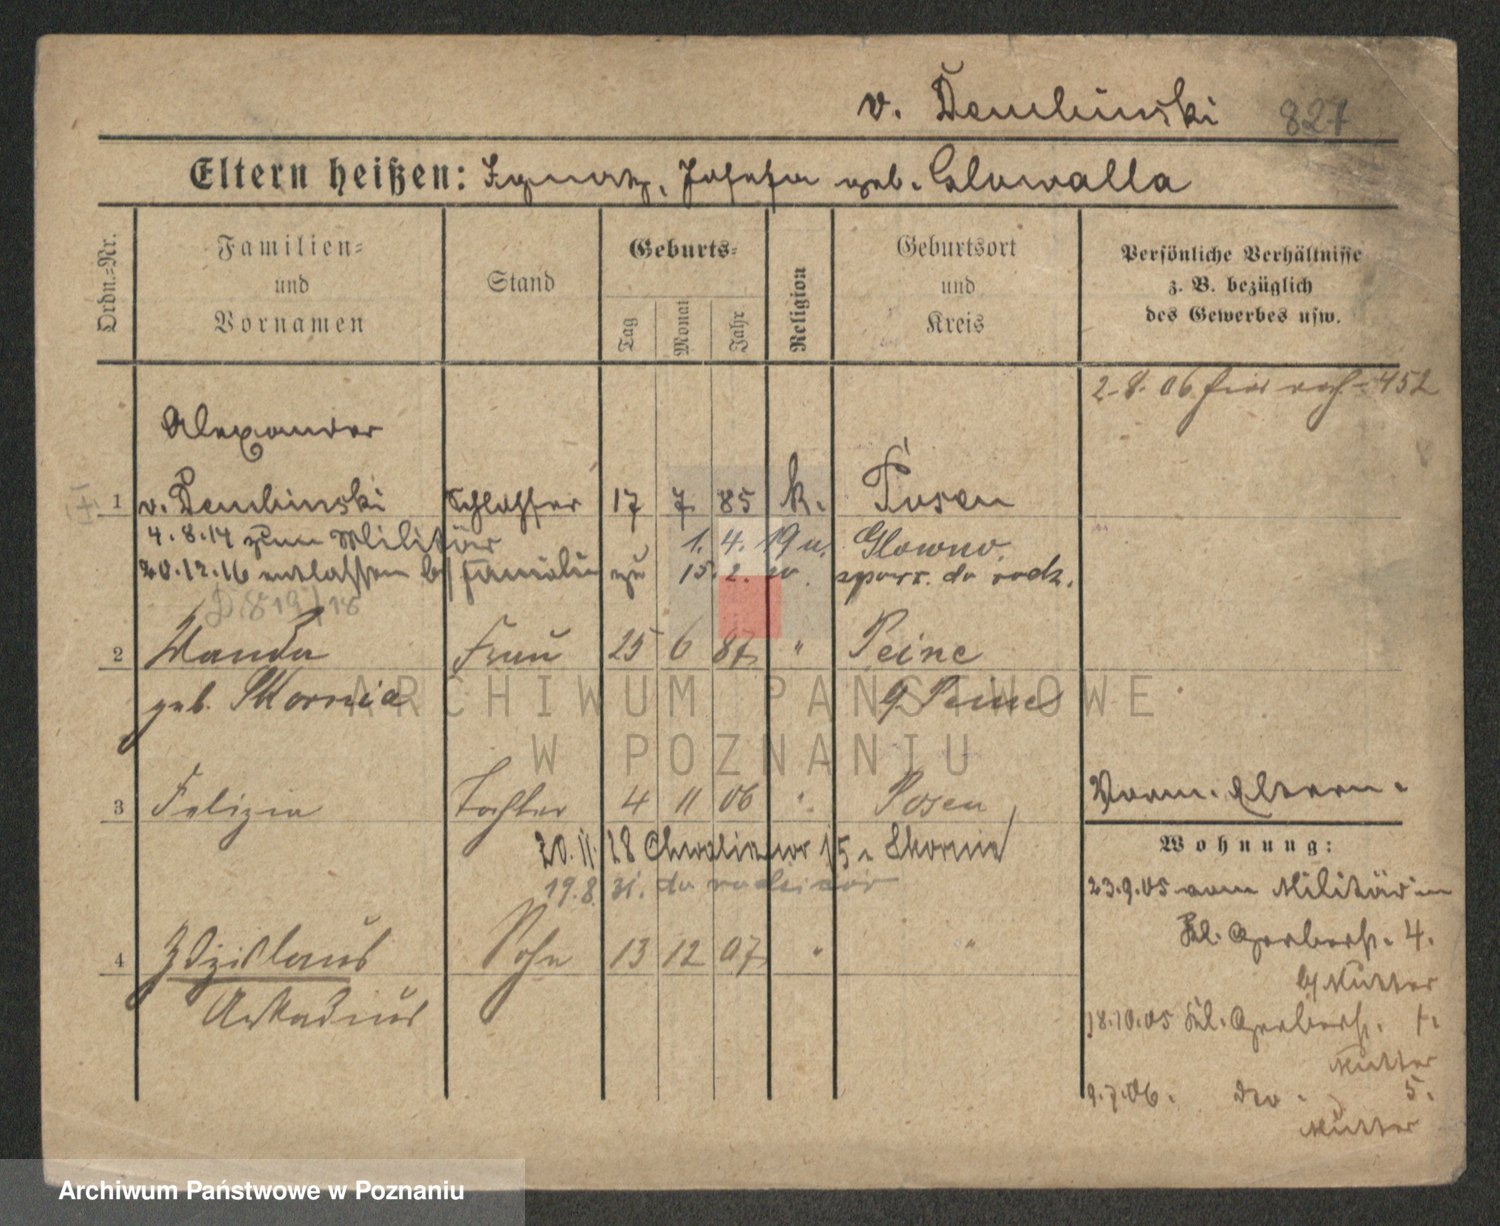 v. Dembinski 827
Eltern heißen: Ignatz, Josefa geb. Glowalla
Ordn.-Nr.
Familien-
und
Vornamen
Stand
Geburts-
Tag
Monat
Jahr
Religion
Geburtsort
und
Kreis
Persönliche Verhältnisse
z. B. bezüglich
des Gewerbes usw.
2.8.06 452
Alexander
1 v. Dembinski Schlosser 17 7 85 k. Posen
4.8.14 zum Militär 1. 4. 19 u. Glowno
20.12.16 entlassen b/ Familie zu 15. 2. 20. spowr. do rodz.
2 Wanda Frau 25 6 87 " Peine
geb. Skornia Peine
ARCHIWUM PAŃSTWOWE
W POZNANIU
3 Felizia Tochter 4 11 06 " Posen
20.11.28 Chwaliszewo 15 Skornia
19.8.31. do rodziców
4 Zdzislaus Sohn 13 12 07 " "
Arkadius
Vorm. Eltern.
Wohnung:
23.9.05 vom Militär in
Kl. Gerberstr. 4.
b/ Mutter
18.10.05 Kl. Gerberstr.
Mutter
9.7.06. dto. 5.
Mutter
Archiwum Państwowe w Poznaniu